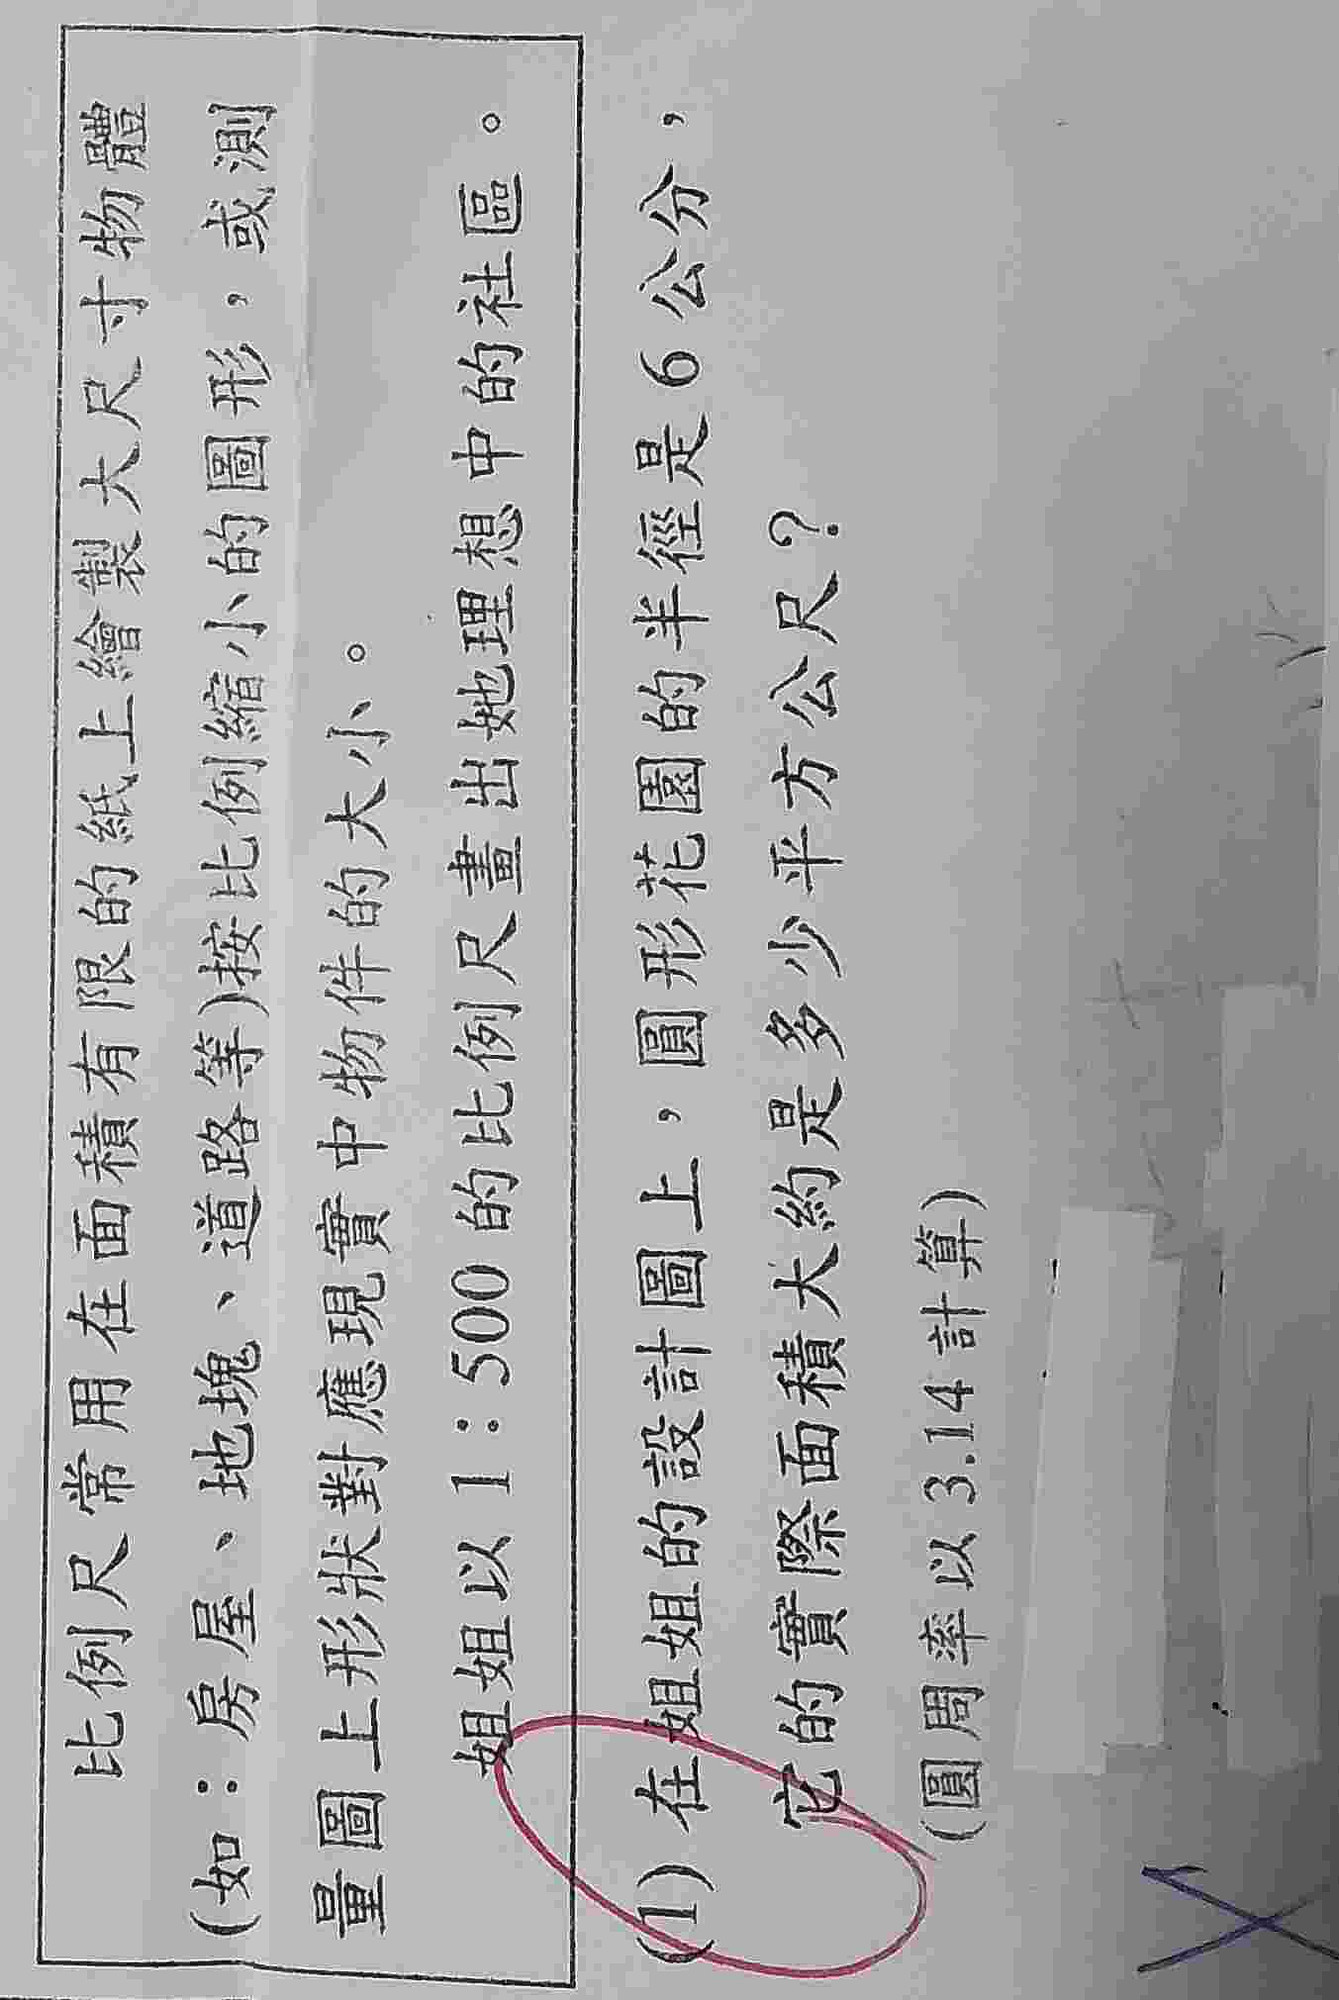 比例尺常用在面積有限的紙上繪製大尺寸物體
(如：房屋、地塊、道路等)按比例縮小的圖形，或測
量圖上形狀對應現實中物件的大小。
姐姐以 1：500 的比例尺畫出她理想中的社區。
(1) 在姐姐的設計圖上，圓形花園的半徑是 6 公分，
它的實際面積大約是多少平方公尺？
(圓周率以 3.14 計算)